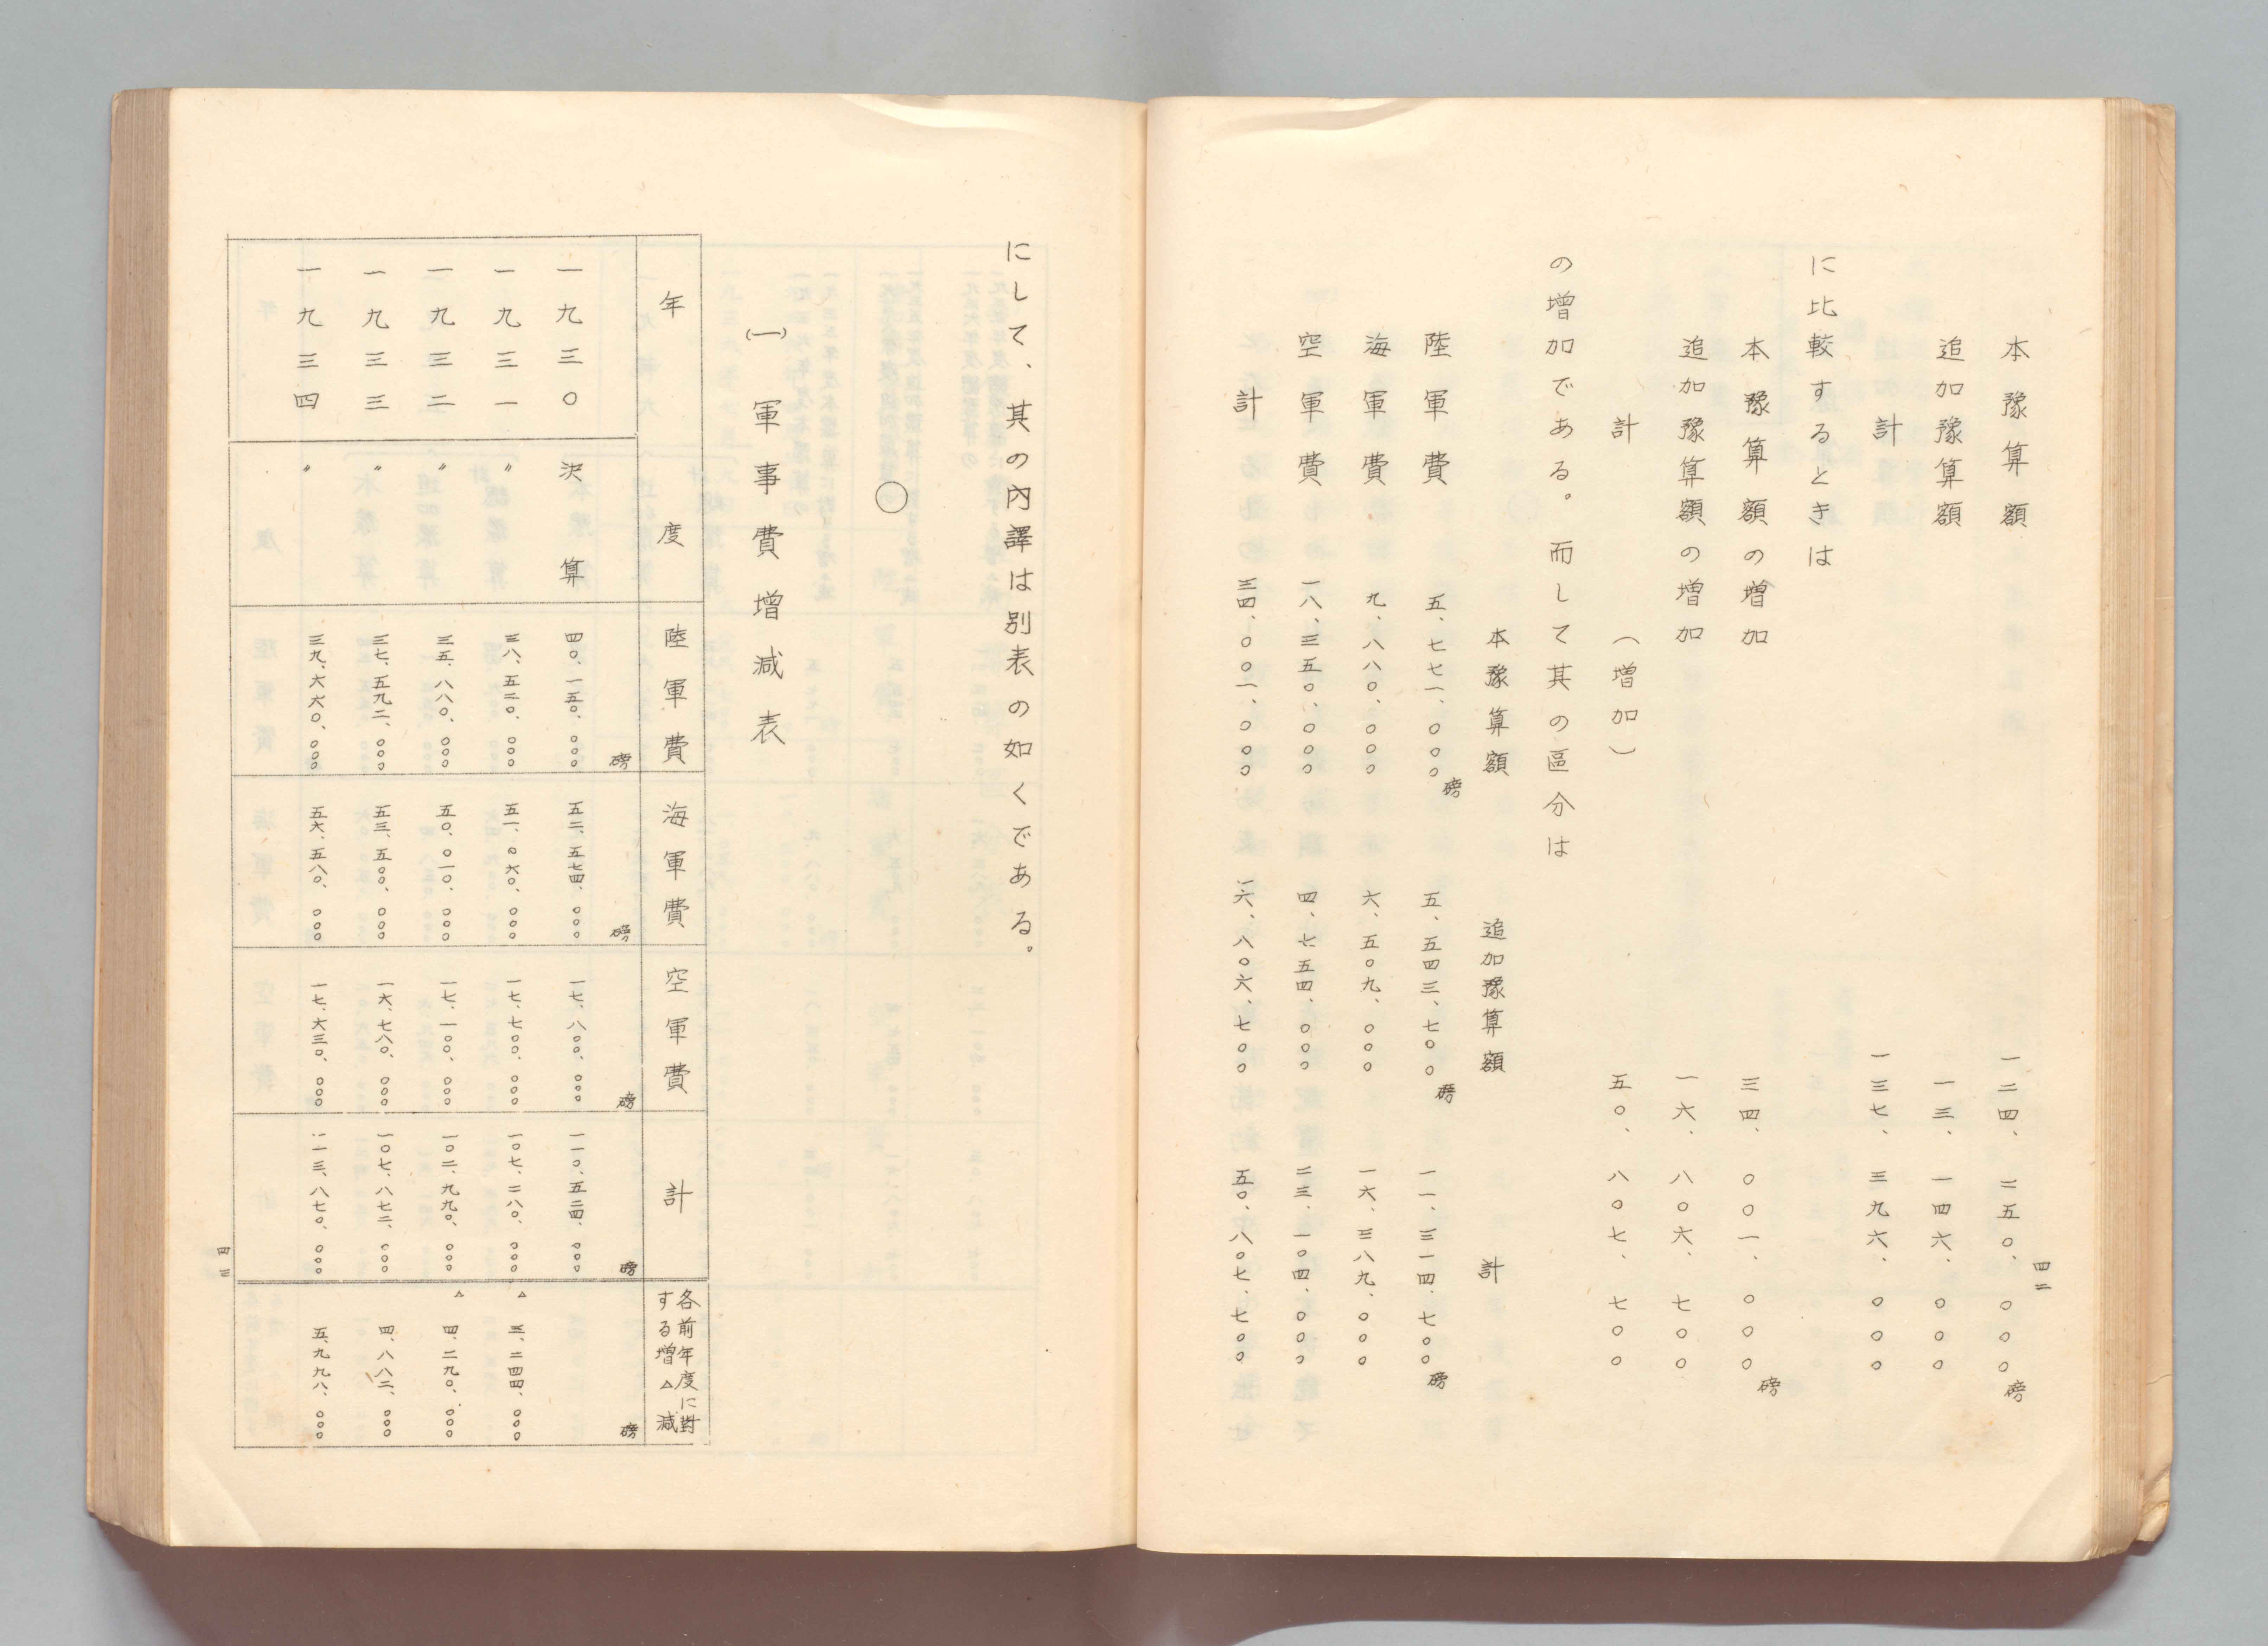 四二
本豫算額 一二四、二五〇、〇〇〇磅
追加豫算額 一三、一四六、〇〇〇
計 一三七、三九六、〇〇〇
に比較するときは
本豫算額の増加 三四、〇〇一、〇〇〇磅
追加豫算額の増加 一六、八〇六、七〇〇
計 （増加） 五〇、八〇七、七〇〇
の増加である。而して其の區分は
本豫算額 追加豫算額 計
陸軍費 五、七七一、〇〇〇磅 五、五四三、七〇〇磅 一一、三一四、七〇〇磅
海軍費 九、八八〇、〇〇〇 六、五〇九、〇〇〇 一六、三八九、〇〇〇
空軍費 一八、三五〇、〇〇〇 四、七五四、〇〇〇 二三、一〇四、〇〇〇
計 三四、〇〇一、〇〇〇 一六、八〇六、七〇〇 五〇、八〇七、七〇〇
にして、其の内譯は別表の如くである。
○
(一) 軍事費増減表
年度 陸軍費 海軍費 空軍費 計 各前年度に對する増△減
磅 磅 磅 磅 磅
一九三〇 決算 四〇、一五〇、〇〇〇 五二、五七四、〇〇〇 一七、八〇〇、〇〇〇 一一〇、五二四、〇〇〇
一九三一 〃 三八、五二〇、〇〇〇 五一、〇六〇、〇〇〇 一七、七〇〇、〇〇〇 一〇七、二八〇、〇〇〇 △ 三、二四四、〇〇〇
一九三二 〃 三五、八八〇、〇〇〇 五〇、〇一〇、〇〇〇 一七、一〇〇、〇〇〇 一〇二、九九〇、〇〇〇 △ 四、二九〇、〇〇〇
一九三三 〃 三七、五九二、〇〇〇 五三、五〇〇、〇〇〇 一六、七八〇、〇〇〇 一〇七、八七二、〇〇〇 四、八八二、〇〇〇
一九三四 〃 三九、六六〇、〇〇〇 五六、五八〇、〇〇〇 一七、六三〇、〇〇〇 一一三、八七〇、〇〇〇 五、九九八、〇〇〇
四三